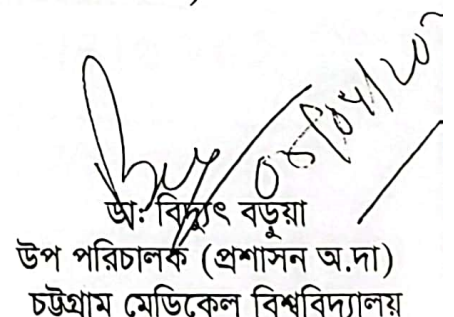 বিদ্যুৎ বড়ুয়া
উপ পরিচালক (প্রশাসন অ.দা)
চট্টগ্রাম মেডিকেল বিশ্ববিদ্যালয়